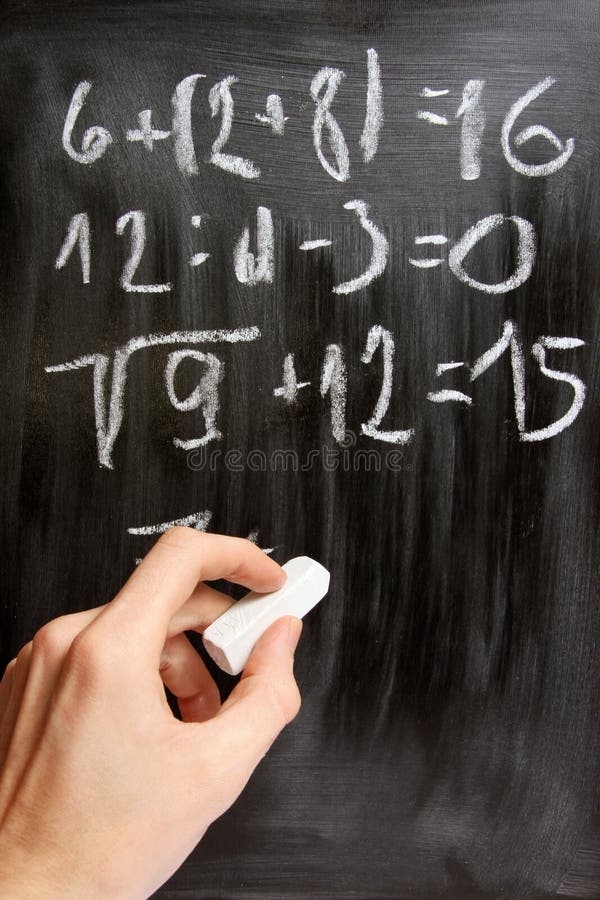 6+(2+8)=16
12:4-3=0
√9+12=15
7
dreamstime